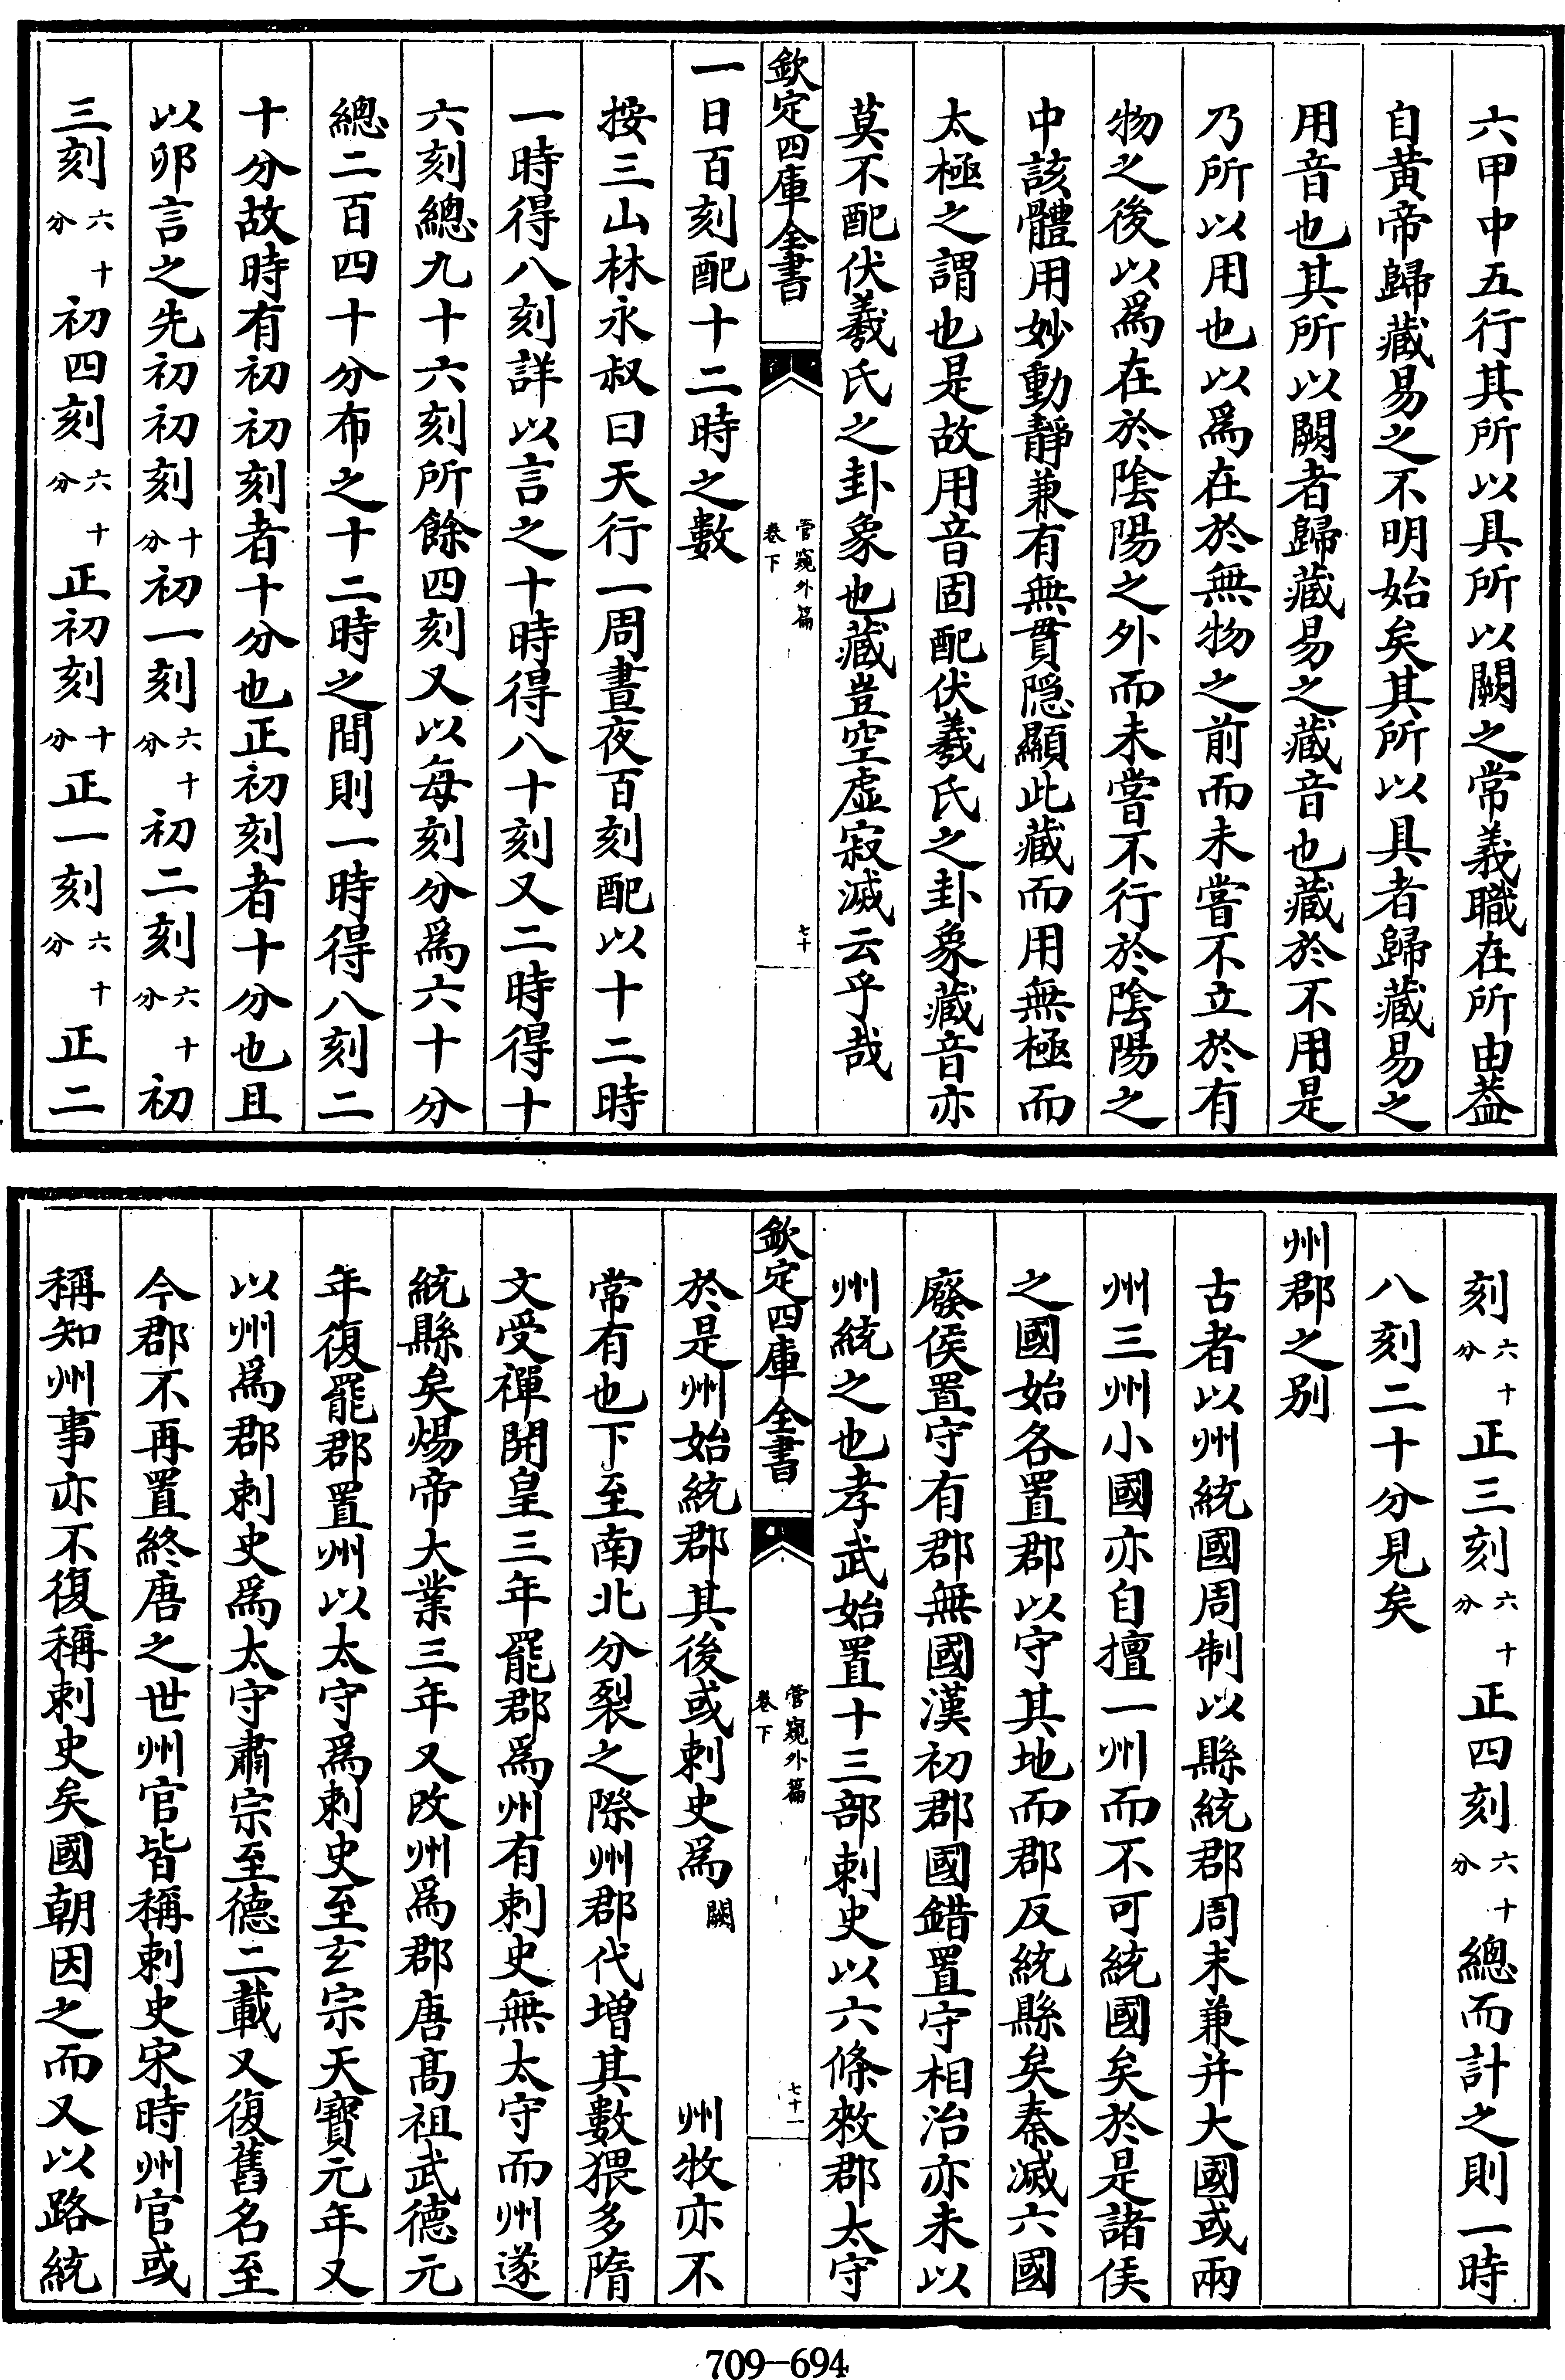 六甲中五行其所以具所以闕之常義職在所由葢
自黄帝歸藏易之不明始矣其所以具者歸藏易之
用音也其所以闕者歸藏易之藏音也藏於不用是
乃所以用也以為在於無物之前而未嘗不立於有
物之後以為在於陰陽之外而未嘗不行於陰陽之
中該體用妙動靜兼有無貫隠顯此藏而用無極而
太極之謂也是故用音固配伏羲氏之卦象藏音亦
莫不配伏羲氏之卦象也藏豈空虚寂滅云乎哉
欽定四庫全書
管窺外篇
卷下
七十
一日百刻配十二時之數
按三山林永叔曰天行一周晝夜百刻配以十二時
一時得八刻詳以言之十時得八十刻又二時得十
六刻總九十六刻所餘四刻又以每刻分為六十分
總二百四十分布之十二時之間則一時得八刻二
十分故時有初初刻者十分也正初刻者十分也且
以卯言之先初初刻十分初一刻六十分初二刻六十分初
三刻六十分初四刻六十分正初刻十分正一刻六十分正二
刻六十分正三刻六十分正四刻六十分總而計之則一時
八刻二十分見矣
州郡之别
古者以州統國周制以縣統郡周末兼并大國或兩
州三州小國亦自擅一州而不可統國矣於是諸侯
之國始各置郡以守其地而郡反統縣矣秦滅六國
廢侯置守有郡無國漢初郡國錯置守相治亦未以
州統之也孝武始置十三部刺史以六條敕郡太守
欽定四庫全書
管窺外篇
卷下
七十一
於是州始統郡其後或刺史為闕 州牧亦不
常有也下至南北分裂之際州郡代増其數猥多隋
文受禪開皇三年罷郡為州有刺史無太守而州遂
統縣矣煬帝大業三年又改州為郡唐髙祖武德元
年復罷郡置州以太守為刺史至玄宗天寶元年又
以州為郡刺史為太守肅宗至德二載又復舊名至
今郡不再置終唐之世州官皆稱刺史宋時州官或
稱知州事亦不復稱刺史矣國朝因之而又以路統
709-694